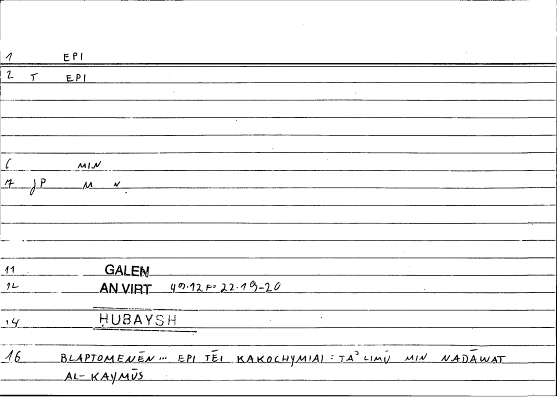 1 EPI
2 T EPI
6 MIN
7 JP M N.
11 GALEN
12 AN.VIRT 49.12 F: 22.19-20
14 ḤUBAYSH
16 BLAPTOMENĒN... EPI TĒI KAKOCHYMIAI : TAʾLIMŪ MIN NADĀWAT
AL-KAYMŪS